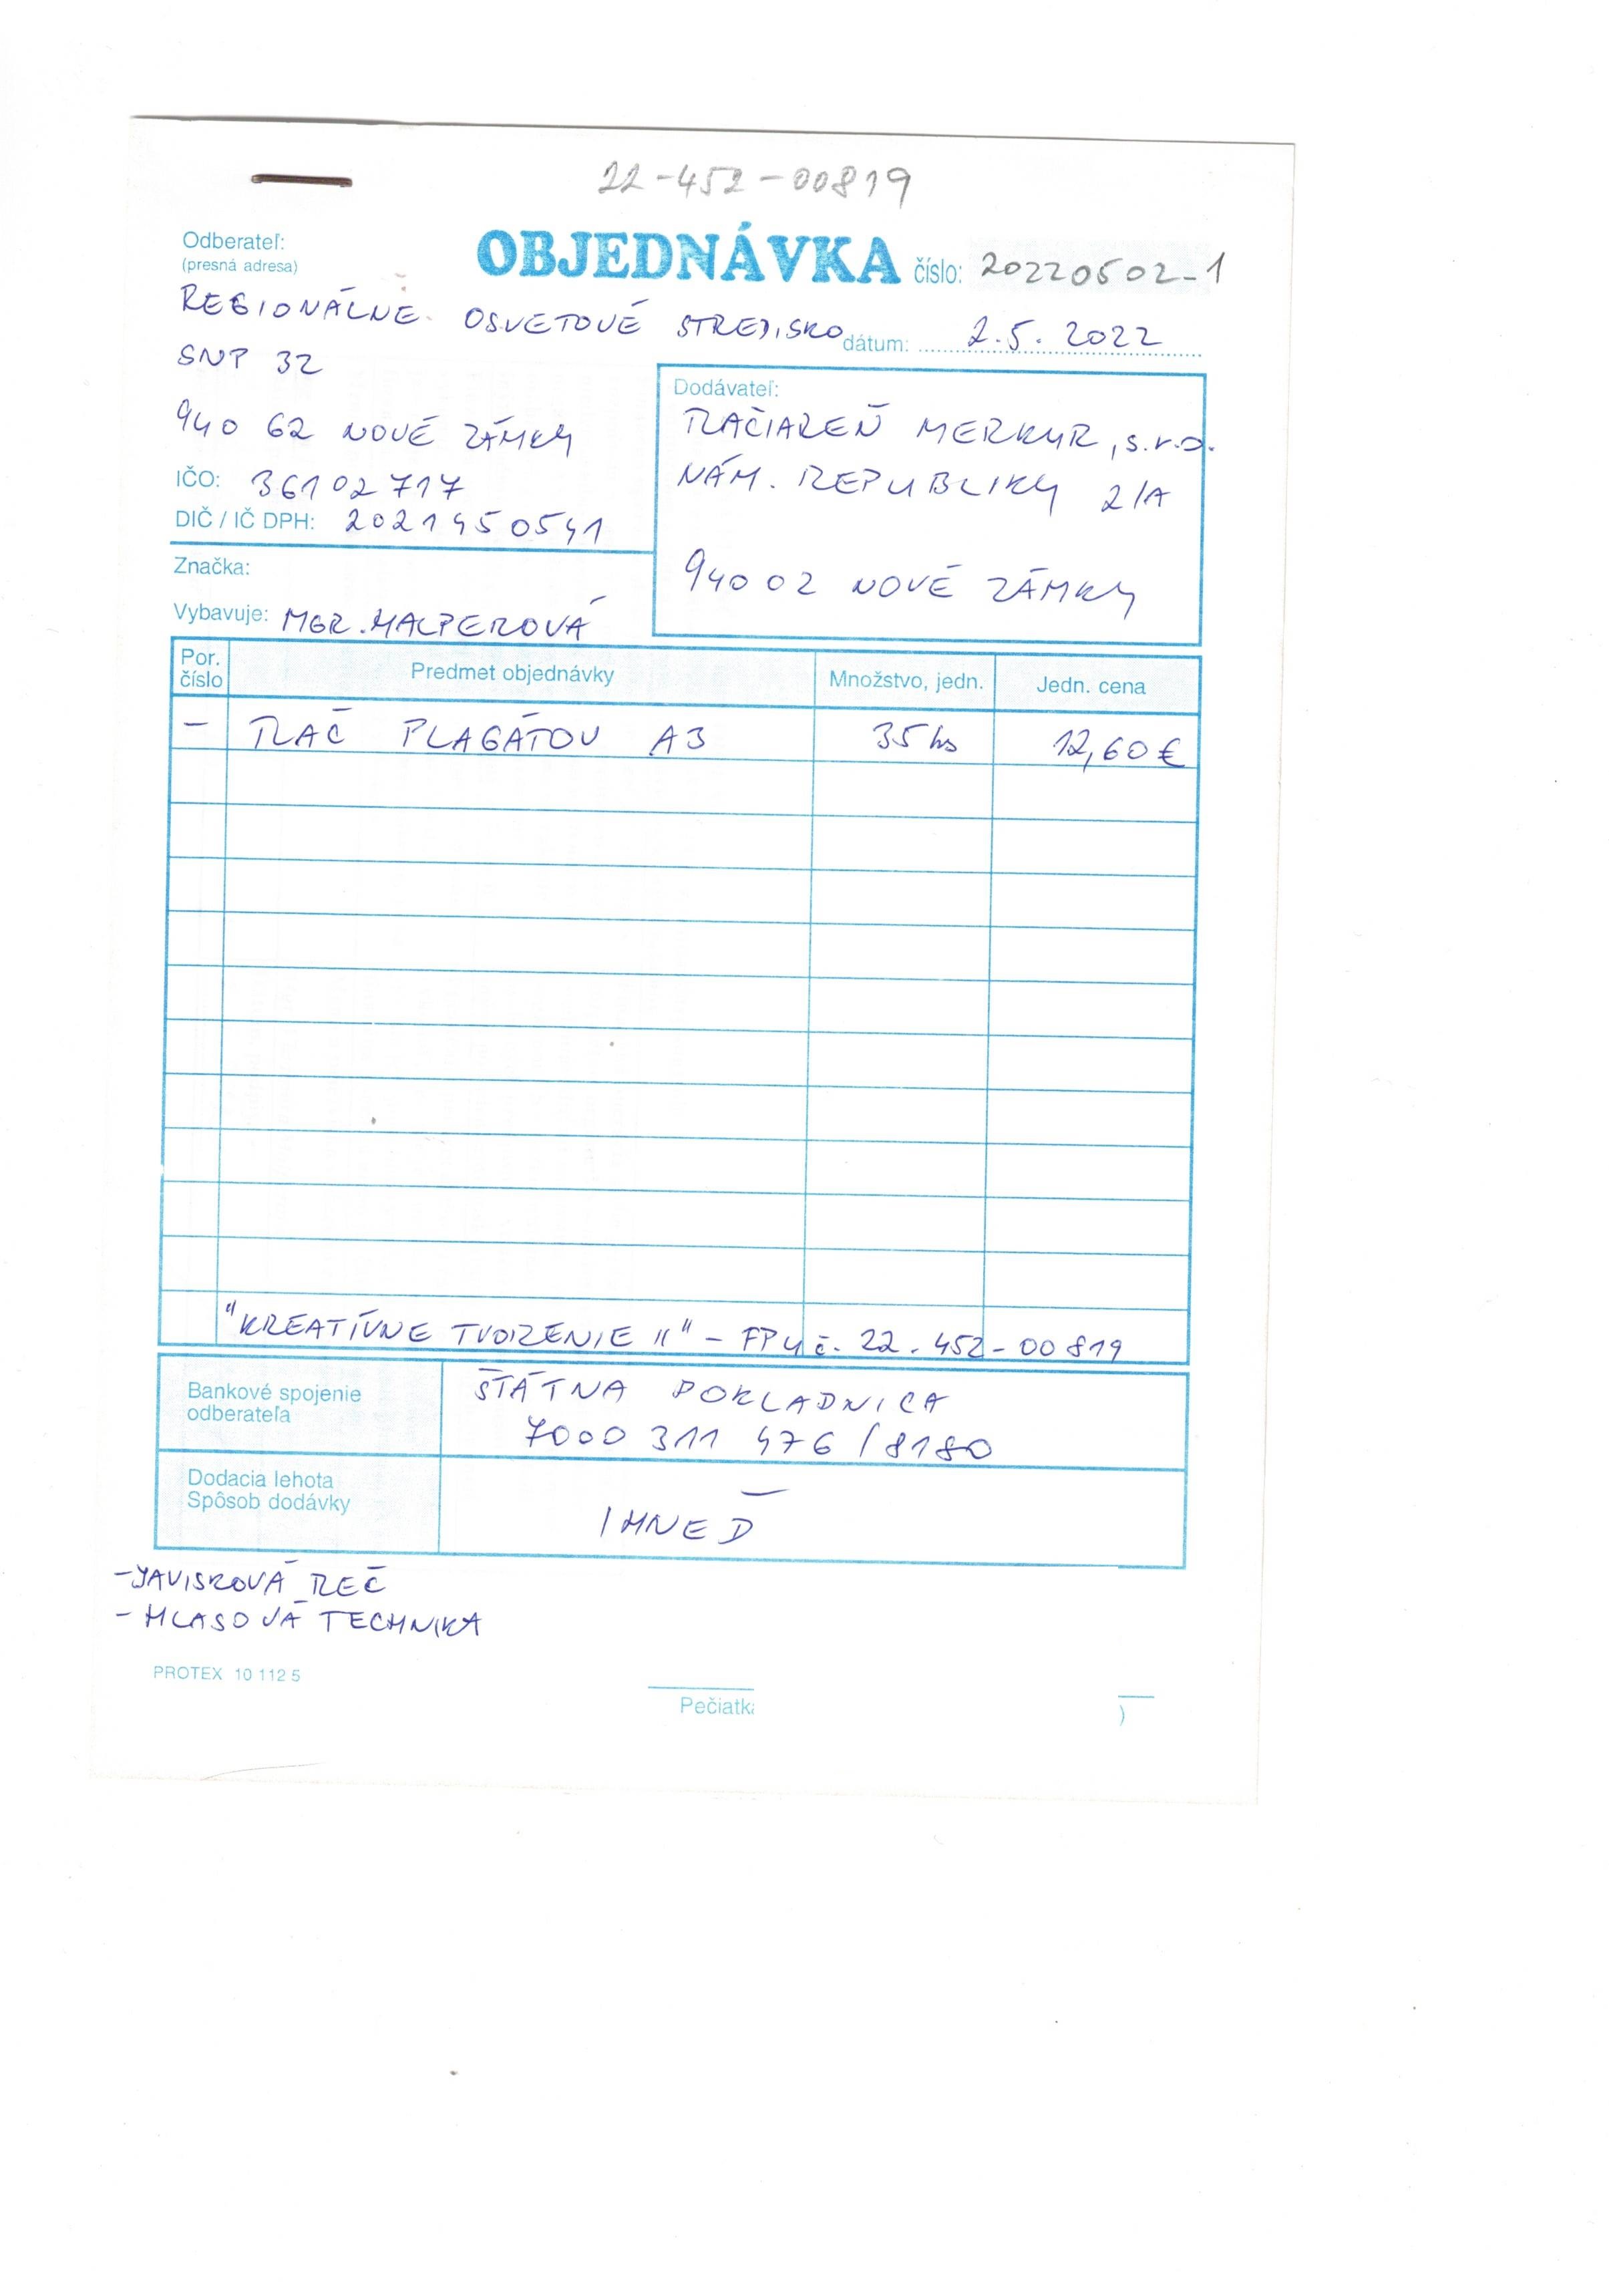 22-452-00819
Odberateľ:
(presná adresa)
OBJEDNÁVKA číslo: 20220502-1
REGIONÁLNE OSVETOVÉ STREDISKO
dátum: 2.5. 2022
SNP 32
940 62 NOVÉ ZÁMKY
IČO: 36102717
DIČ / IČ DPH: 2021450541
Značka:
Vybavuje: MGR. HALPEROVÁ
Dodávateľ:
TLAČIAREŇ MERKUR, s.r.o.
NÁM. REPUBLIKY 2/A
94002 NOVÉ ZÁMKY
Por. číslo Predmet objednávky Množstvo, jedn. Jedn. cena
- TLAČ PLAGÁTOV A3 35 ks 12,60 €
"KREATÍVNE TVORENIE II" - FPU č. 22. 452-00819
Bankové spojenie
odberateľa
ŠTÁTNA POKLADNICA
7000 311 476 / 8180
Dodacia lehota
Spôsob dodávky
IHNEĎ
- JAVISKOVÁ REČ
- HLASOVÁ TECHNIKA
PROTEX 10 112 5
Pečiatk
)